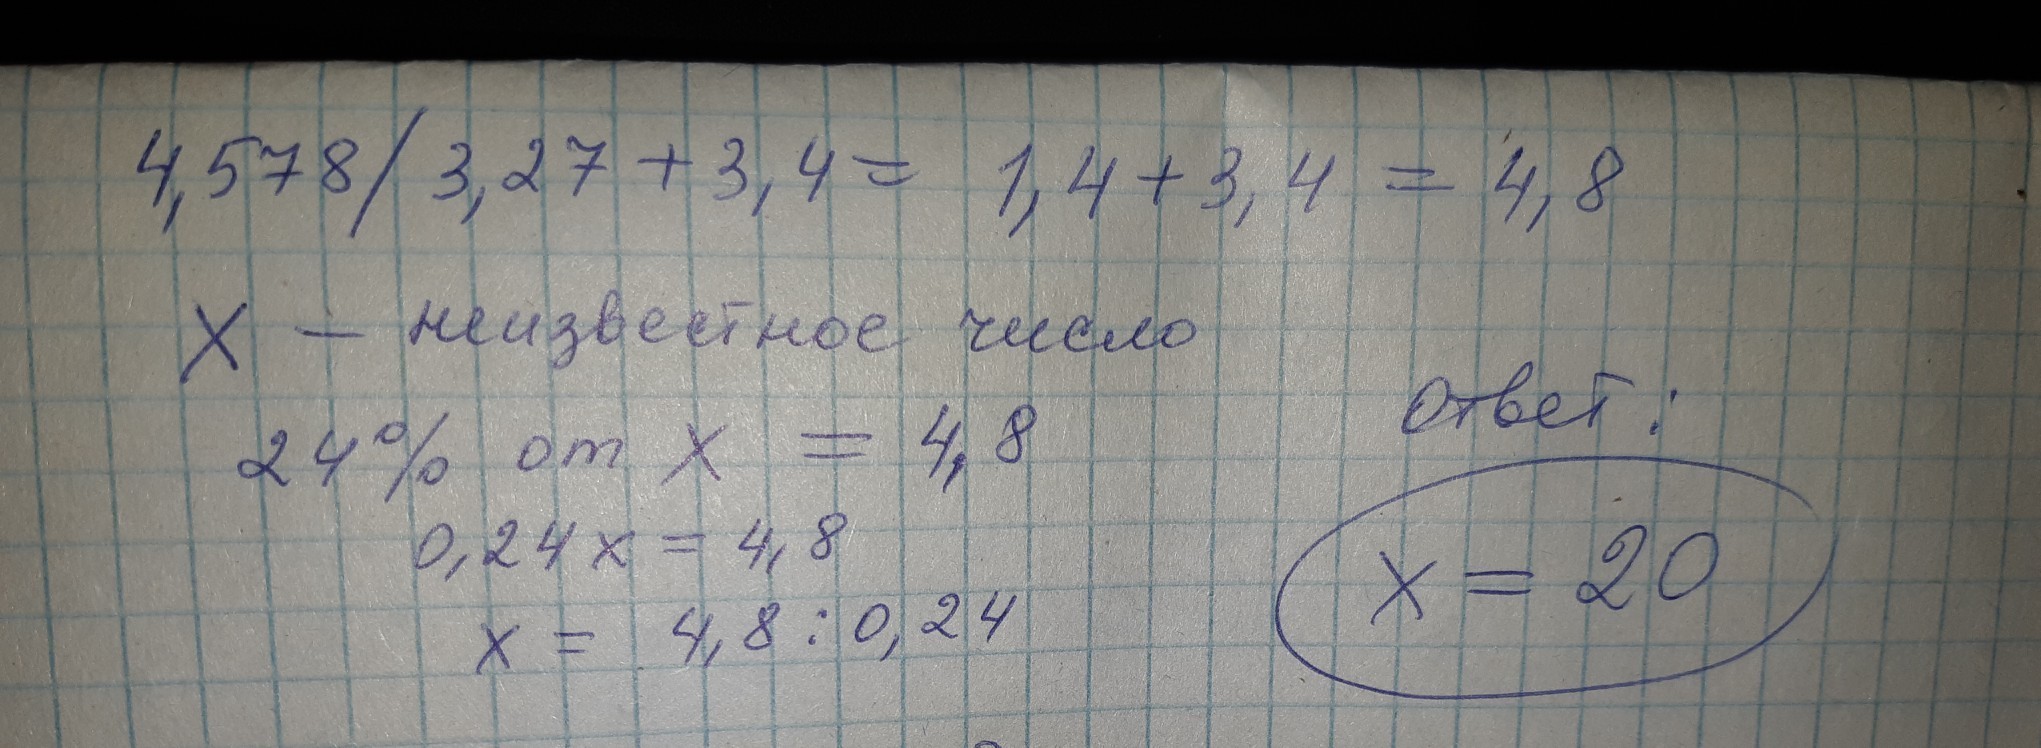 4,578/3,27+3,4= 1,4+3,4 = 4,8
X – неизвестное число
24% от X = 4,8
0,24x = 4,8
x = 4,8 : 0,24
Ответ:
x = 20